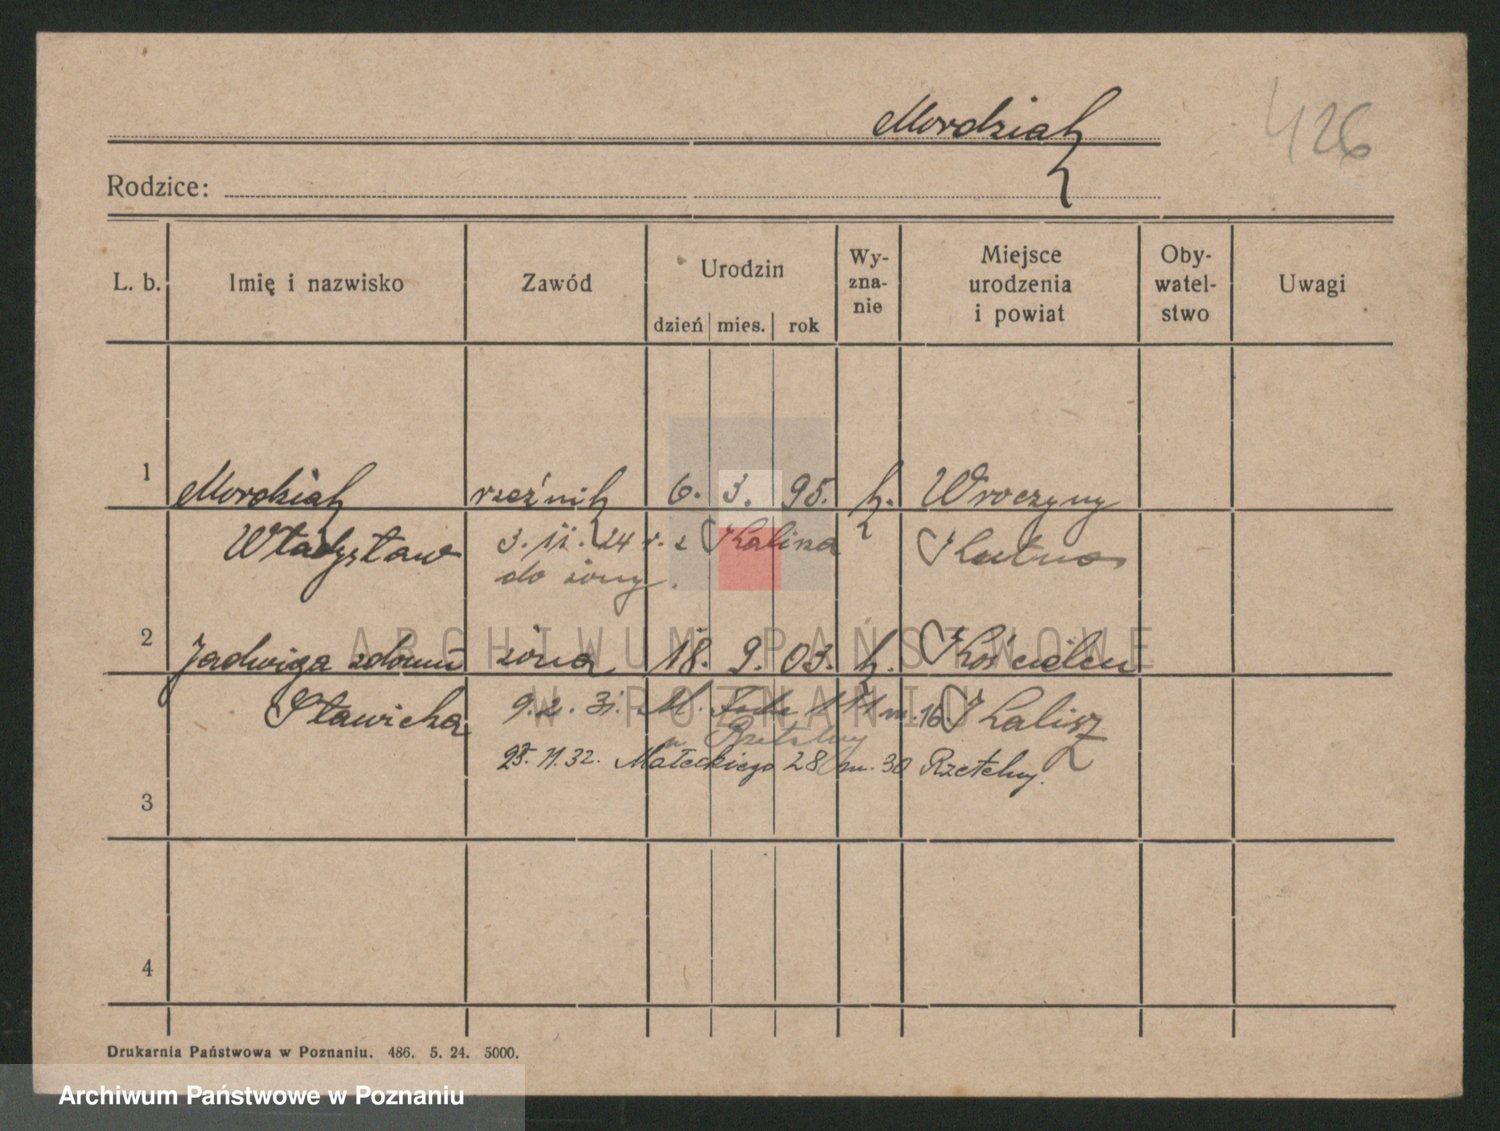 Mordziak
426
Rodzice:
L. b. Imię i nazwisko Zawód Urodzin Wy-zna-nie Miejsce urodzenia i powiat Oby-watel-stwo Uwagi
dzień mies. rok
1 Mordziak rzeźnik 6. 3. 95. k. Wroczyny
Władysław 3. 11. 24 r. z Kalisza Kutno
do żony.
ARCHIWUM PAŃSTWOWE
2 Jadwiga zdomu żona 18. 9. 03. k. Kościelec
W POZNANIU
Stawicka 9. 2. 31. M. m. 16. Kalisz
23. 11. 32. Małeckiego 28 m. 30 Rzetelny.
3
4
Drukarnia Państwowa w Poznaniu. 486. 5. 24. 5000.
Archiwum Państwowe w Poznaniu